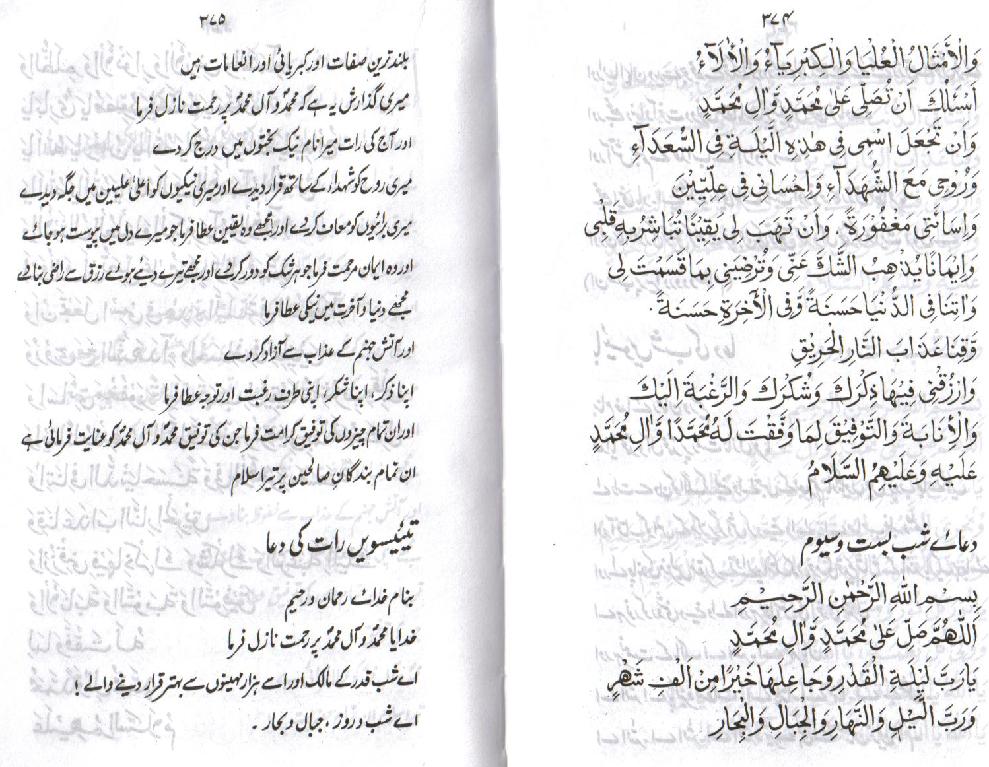 ۳۷۴
وَالْاَمْثَالُ الْعُلْيَا وَالْكِبْرِيَآءُ وَالْاٰلَآءُ
اَسْئَلُكَ اَنْ تُصَلِّىَ عَلٰى مُحَمَّدٍ وَّاٰلِ مُحَمَّدٍ
وَاَنْ تَجْعَلَ اسْمِىْ فِىْ هٰذِهِ الَّيْلَةِ فِى السُّعَدَآءِ
وَرُوْحِىْ مَعَ الشُّهَدَآءِ وَاِحْسَانِىْ فِىْ عِلِّيِّيْنَ
وَاِسَائَتِىْ مَغْفُوْرَةً ، وَاَنْ تَهَبَ لِىْ يَقِيْنًا تُبَاشِرُ بِهٖ قَلْبِىْ
وَاِيْمَانًا يُذْهِبُ الشَّكَّ عَنِّىْ وَتُرْضِيَنِىْ بِمَا قَسَمْتَ لِىْ
وَاٰتِنَا فِى الدُّنْيَا حَسَنَةً وَّفِى الْاٰخِرَةِ حَسَنَةً ۔
وَّقِنَا عَذَابَ النَّارِ الْحَرِيْقِ
وَارْزُقْنِىْ فِيْهَا ذِكْرَكَ وَشُكْرَكَ وَالرَّغْبَةَ اِلَيْكَ
وَالْاِنَابَةَ وَالتَّوْفِيْقَ لِمَا وَفَّقْتَ لَهٗ مُحَمَّدًا وَّاٰلَ مُحَمَّدٍ
عَلَيْهِ وَعَلَيْهِمُ السَّلَامُ
دعائے شب بست و سیوم
بِسْمِ اللهِ الرَّحْمٰنِ الرَّحِيْمِ
اَللّٰهُمَّ صَلِّ عَلٰى مُحَمَّدٍ وَّاٰلِ مُحَمَّدٍ
يَارَبَّ لَيْلَةِ الْقَدْرِ وَجَاعِلَهَا خَيْرًا مِنْ اَلْفِ شَهْرٍ
وَرَبَّ الَّيْلِ وَالنَّهَارِ وَالْجِبَالِ وَالْبِحَارِ
۳۷۵
بلند ترین صفات اور کبریائی اور انعامات ہیں
میری گذارش یہ ہے کہ محمدؐ و آل محمدؐ پر رحمت نازل فرما
اور آج کی رات میرا نام نیک بختوں میں درج کردے
میری روح کو شہداء کے ساتھ قرار دیدے اور میری نیکیوں کو اعلیٰ علیین میں جگہ دیدے
میری برائیوں کو معاف کردے اور مجھے وہ یقین عطا فرما جو میرے دل میں پیوست ہوجائے
اور وہ ایمان مرحمت فرما جو ہر شک کو دور کردے اور مجھے تیرے دیے ہوئے رزق سے راضی بنادے
مجھے دنیا و آخرت میں نیکی عطا فرما
اور آتش جہنم کے عذاب سے آزاد کردے
اپنا ذکر، اپنا شکر، اپنی طرف رغبت اور توجہ عطا فرما
اور ان تمام چیزوں کی توفیق کرامت فرما جن کی توفیق محمدؐ و آل محمدؐ کو عنایت فرمائی ہے
ان تمام بندگانِ صالحین پر تیرا سلام
تیئیسویں رات کی دعا
بنام خدائے رحمان و رحیم
خدایا محمدؐ و آل محمدؐ پر رحمت نازل فرما
اے شب قدر کے مالک اور اسے ہزار مہینوں سے بہتر قرار دینے والے !
اے شب و روز ، جبال و بحار ۔